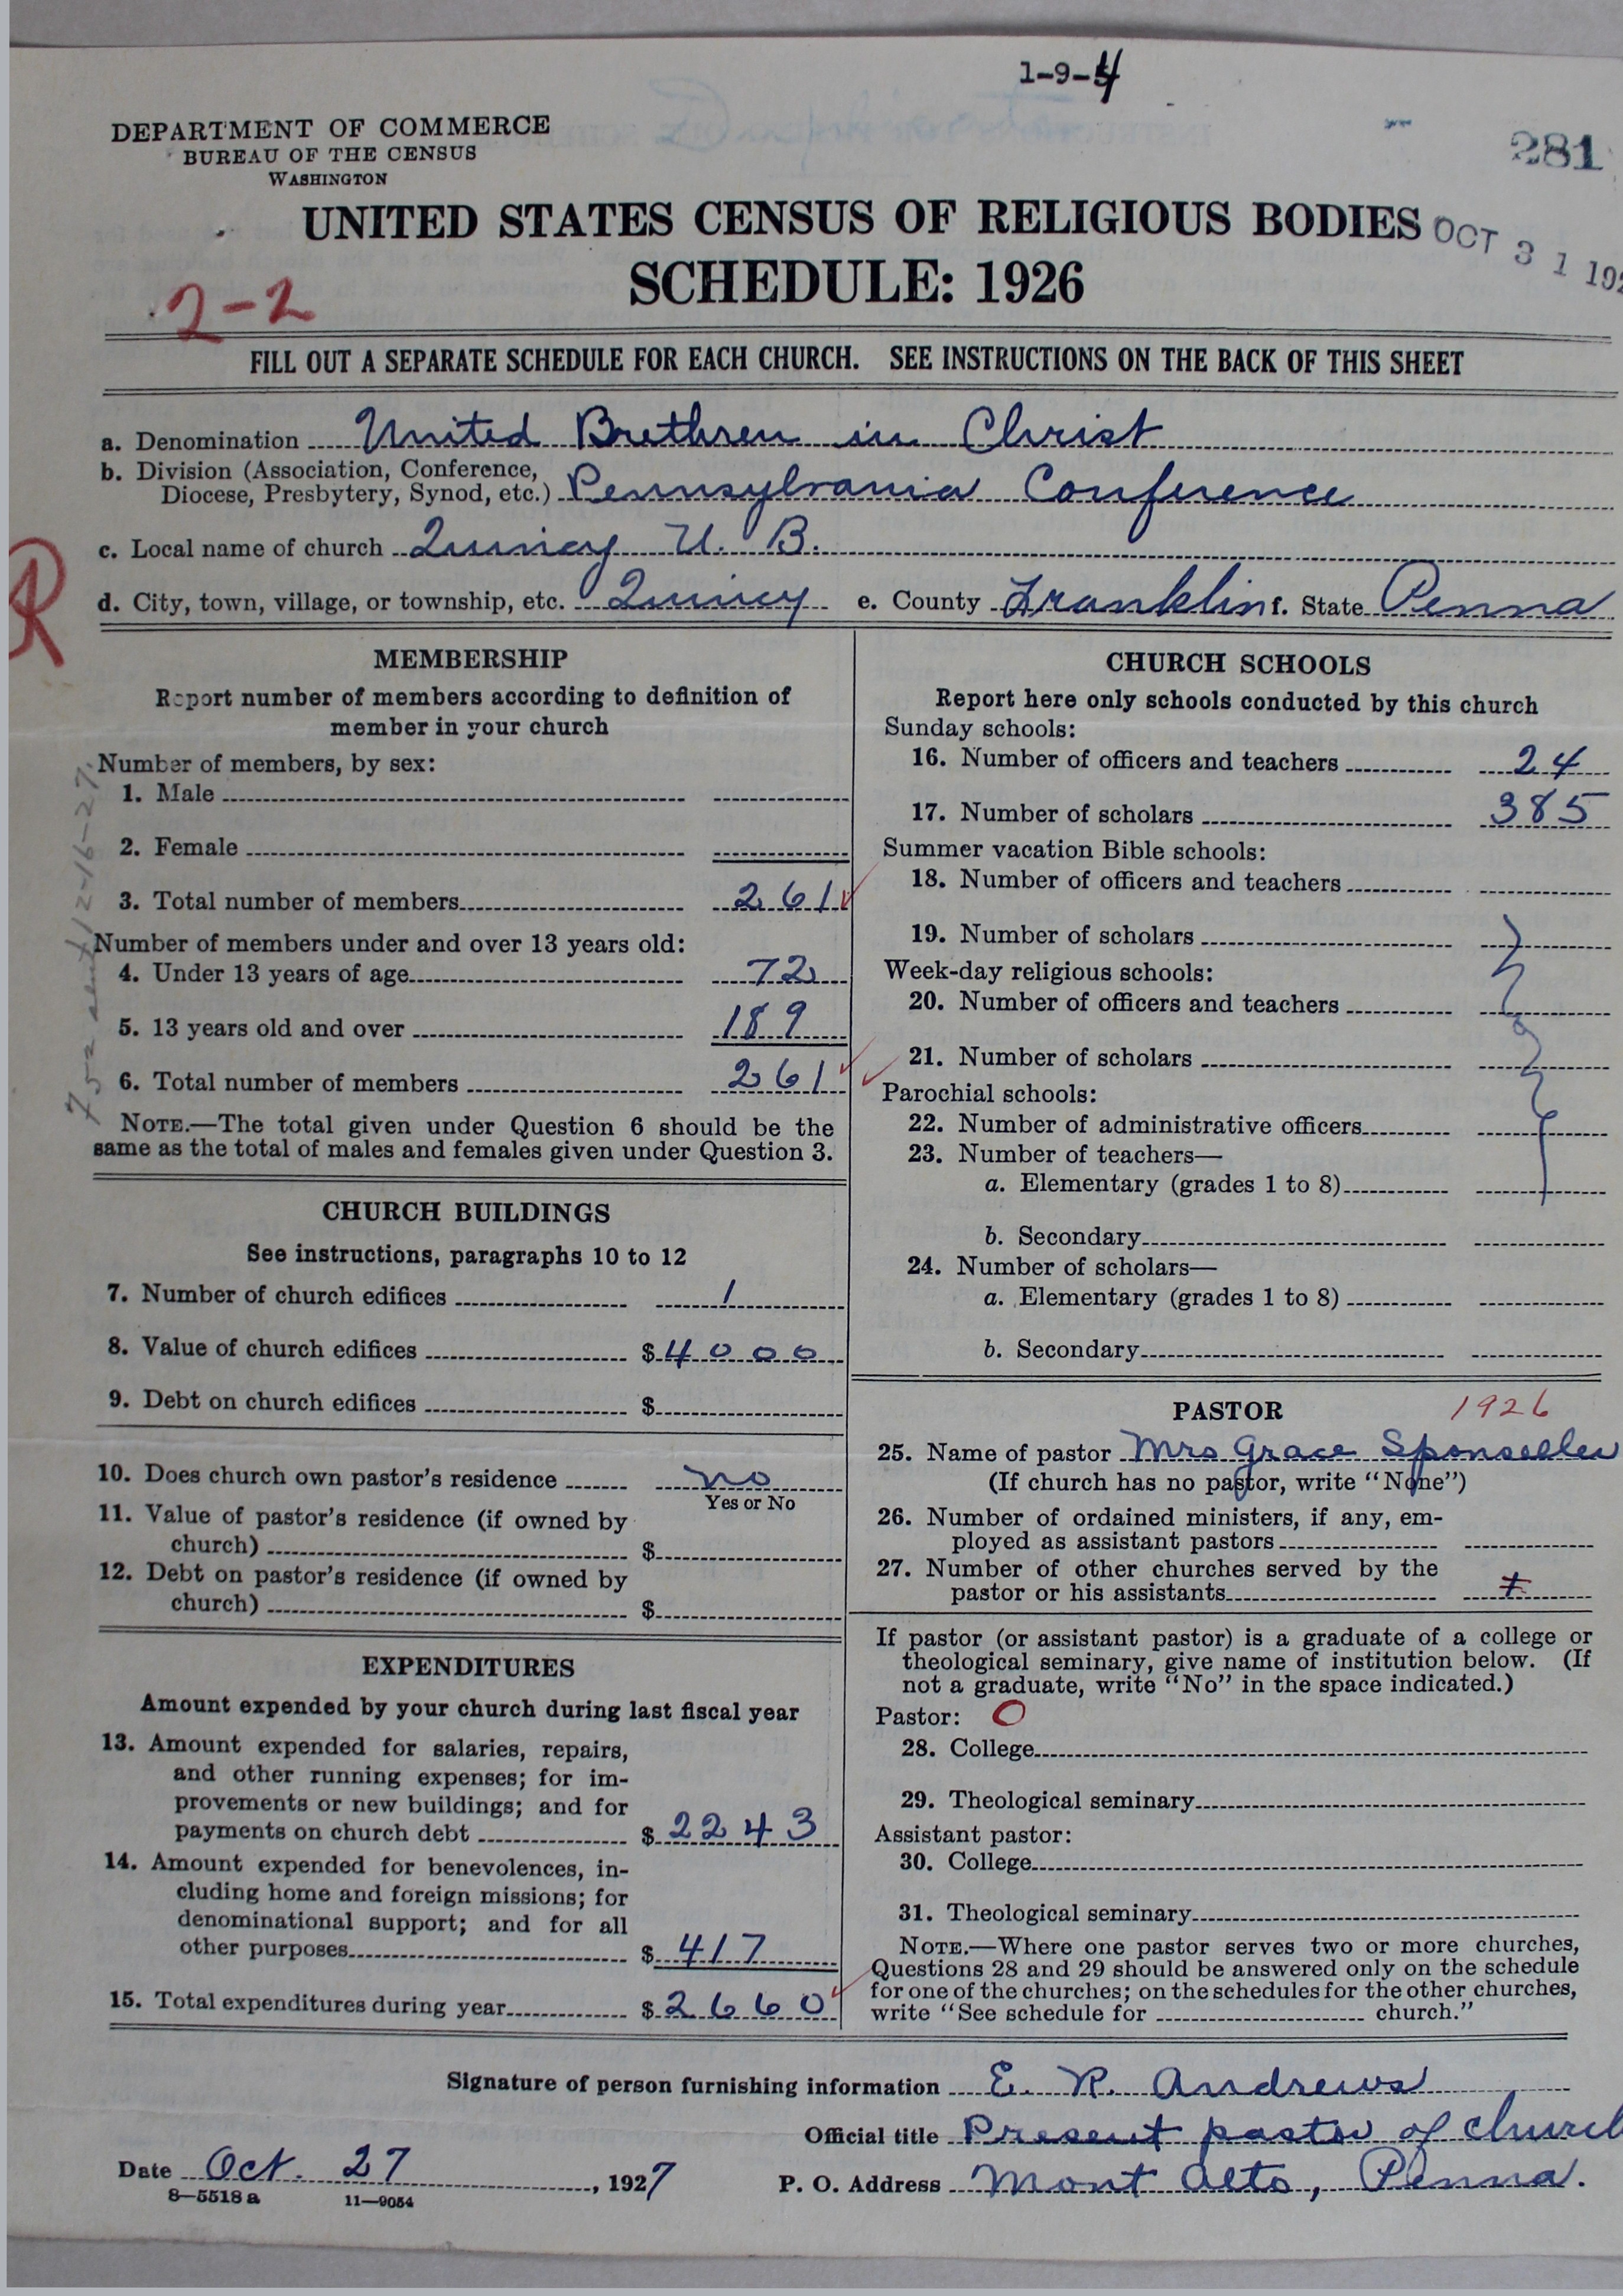 1-9-4
281
DEPARTMENT OF COMMERCE
BUREAU OF THE CENSUS
WASHINGTON
UNITED STATES CENSUS OF RELIGIOUS BODIES
OCT 31 192
SCHEDULE: 1926
2-2
FILL OUT A SEPARATE SCHEDULE FOR EACH CHURCH. SEE INSTRUCTIONS ON THE BACK OF THIS SHEET
a. Denomination United Brethren in Christ
b. Division (Association, Conference,
Diocese, Presbytery, Synod, etc.) Pennsylvania Conference
c. Local name of church Quincy U. B.
R
d. City, town, village, or township, etc. Quincy e. County Franklin f. State Penna
MEMBERSHIP
Report number of members according to definition of
member in your church
Number of members, by sex:
1. Male
2. Female
3. Total number of members 261
Number of members under and over 13 years old:
4. Under 13 years of age 72
5. 13 years old and over 189
6. Total number of members 261
NOTE.—The total given under Question 6 should be the
same as the total of males and females given under Question 3.
12-16-27
CHURCH BUILDINGS
See instructions, paragraphs 10 to 12
7. Number of church edifices 1
8. Value of church edifices $4000
9. Debt on church edifices $
10. Does church own pastor's residence no
Yes or No
11. Value of pastor's residence (if owned by
church) $
12. Debt on pastor's residence (if owned by
church) $
EXPENDITURES
Amount expended by your church during last fiscal year
13. Amount expended for salaries, repairs,
and other running expenses; for im-
provements or new buildings; and for
payments on church debt $2243
14. Amount expended for benevolences, in-
cluding home and foreign missions; for
denominational support; and for all
other purposes $417
15. Total expenditures during year $2660
CHURCH SCHOOLS
Report here only schools conducted by this church
Sunday schools:
16. Number of officers and teachers 24
17. Number of scholars 385
Summer vacation Bible schools:
18. Number of officers and teachers
19. Number of scholars
Week-day religious schools:
20. Number of officers and teachers
21. Number of scholars
Parochial schools:
22. Number of administrative officers
23. Number of teachers—
a. Elementary (grades 1 to 8)
b. Secondary
24. Number of scholars—
a. Elementary (grades 1 to 8)
b. Secondary
PASTOR 1926
25. Name of pastor Mrs Grace Sponseller
(If church has no pastor, write "None")
26. Number of ordained ministers, if any, em-
ployed as assistant pastors
27. Number of other churches served by the
pastor or his assistants
If pastor (or assistant pastor) is a graduate of a college or
theological seminary, give name of institution below. (If
not a graduate, write "No" in the space indicated.)
Pastor: O
28. College
29. Theological seminary
Assistant pastor:
30. College
31. Theological seminary
NOTE.—Where one pastor serves two or more churches,
Questions 28 and 29 should be answered only on the schedule
for one of the churches; on the schedules for the other churches,
write "See schedule for church."
Signature of person furnishing information E. R. Andrews
Official title Present pastor of church
Date Oct. 27, 1927
P. O. Address Mont Alto, Penna.
8—5518a 11—9054